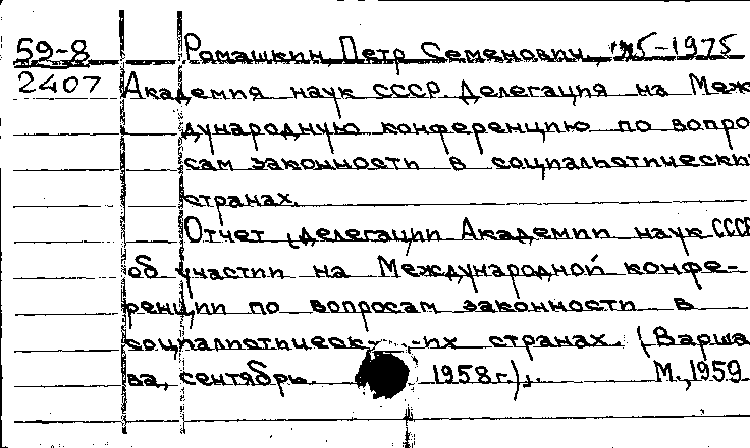 59-8 Ромашкин, Петр Семенович, -1975
2407 Академия наук СССР. Делегация на Меж
дународную конференцию по вопро
сам законности в социалистически
странах.
Отчет делегации Академии наук СССР
об участии на Международной конфе-
ренции по вопросам законности в
социалистическ- -их странах. (Варша
ва, сентябрь. 1958 г.). М., 1959